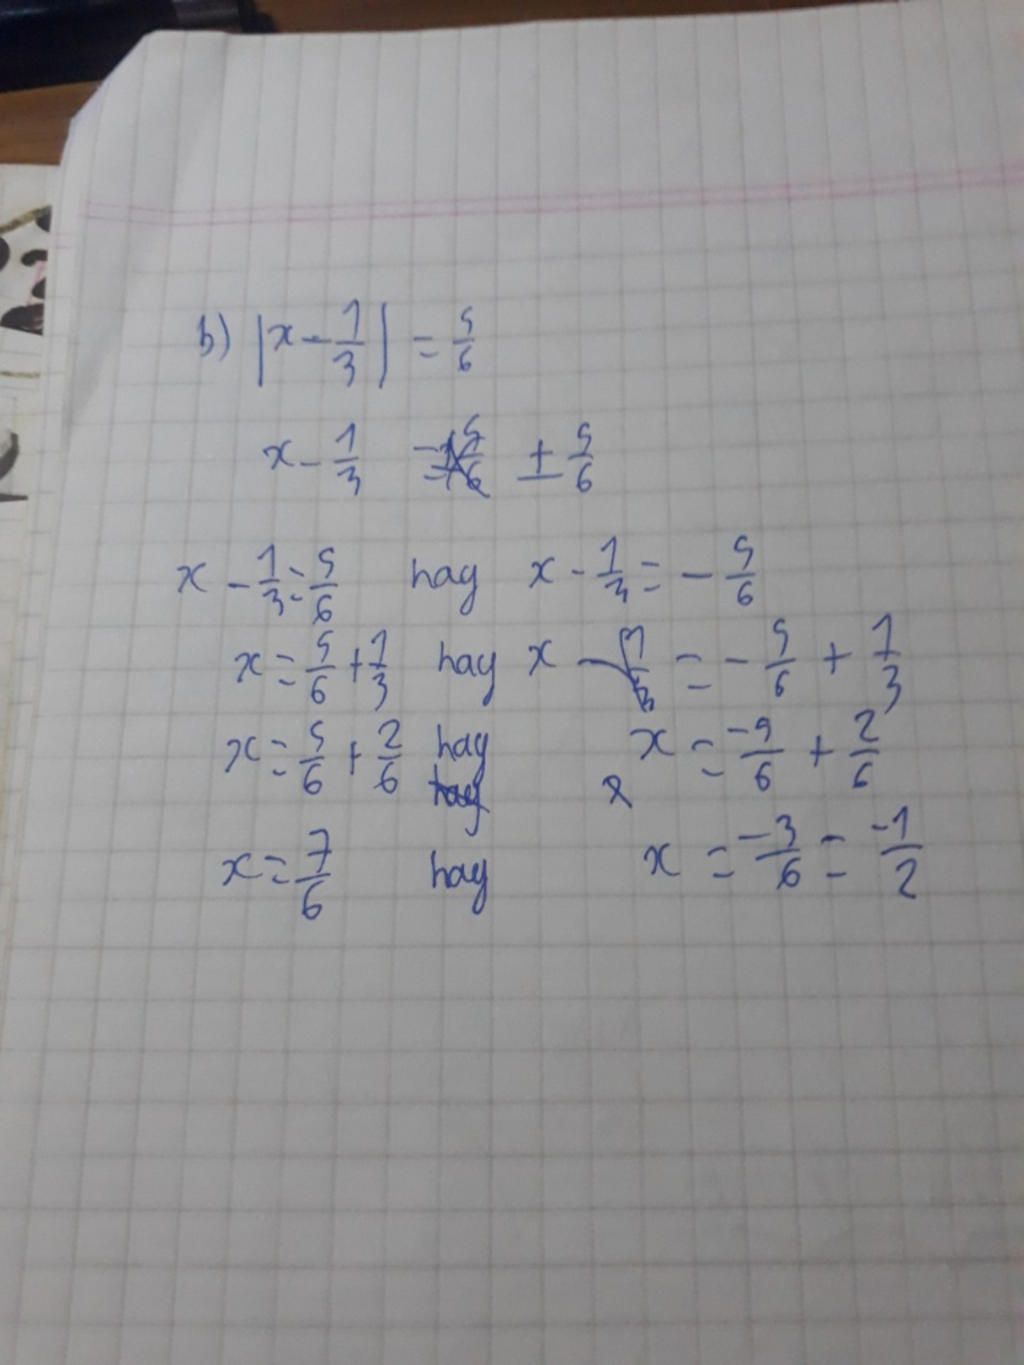 b) |x - 1/3| = 5/6
x - 1/3 = ± 5/6
x - 1/3 = 5/6 hay x - 1/3 = - 5/6
x = 5/6 + 1/3 hay x = - 5/6 + 1/3
x = 5/6 + 2/6 hay x = -5/6 + 2/6
x = 7/6 hay x = -3/6 = -1/2